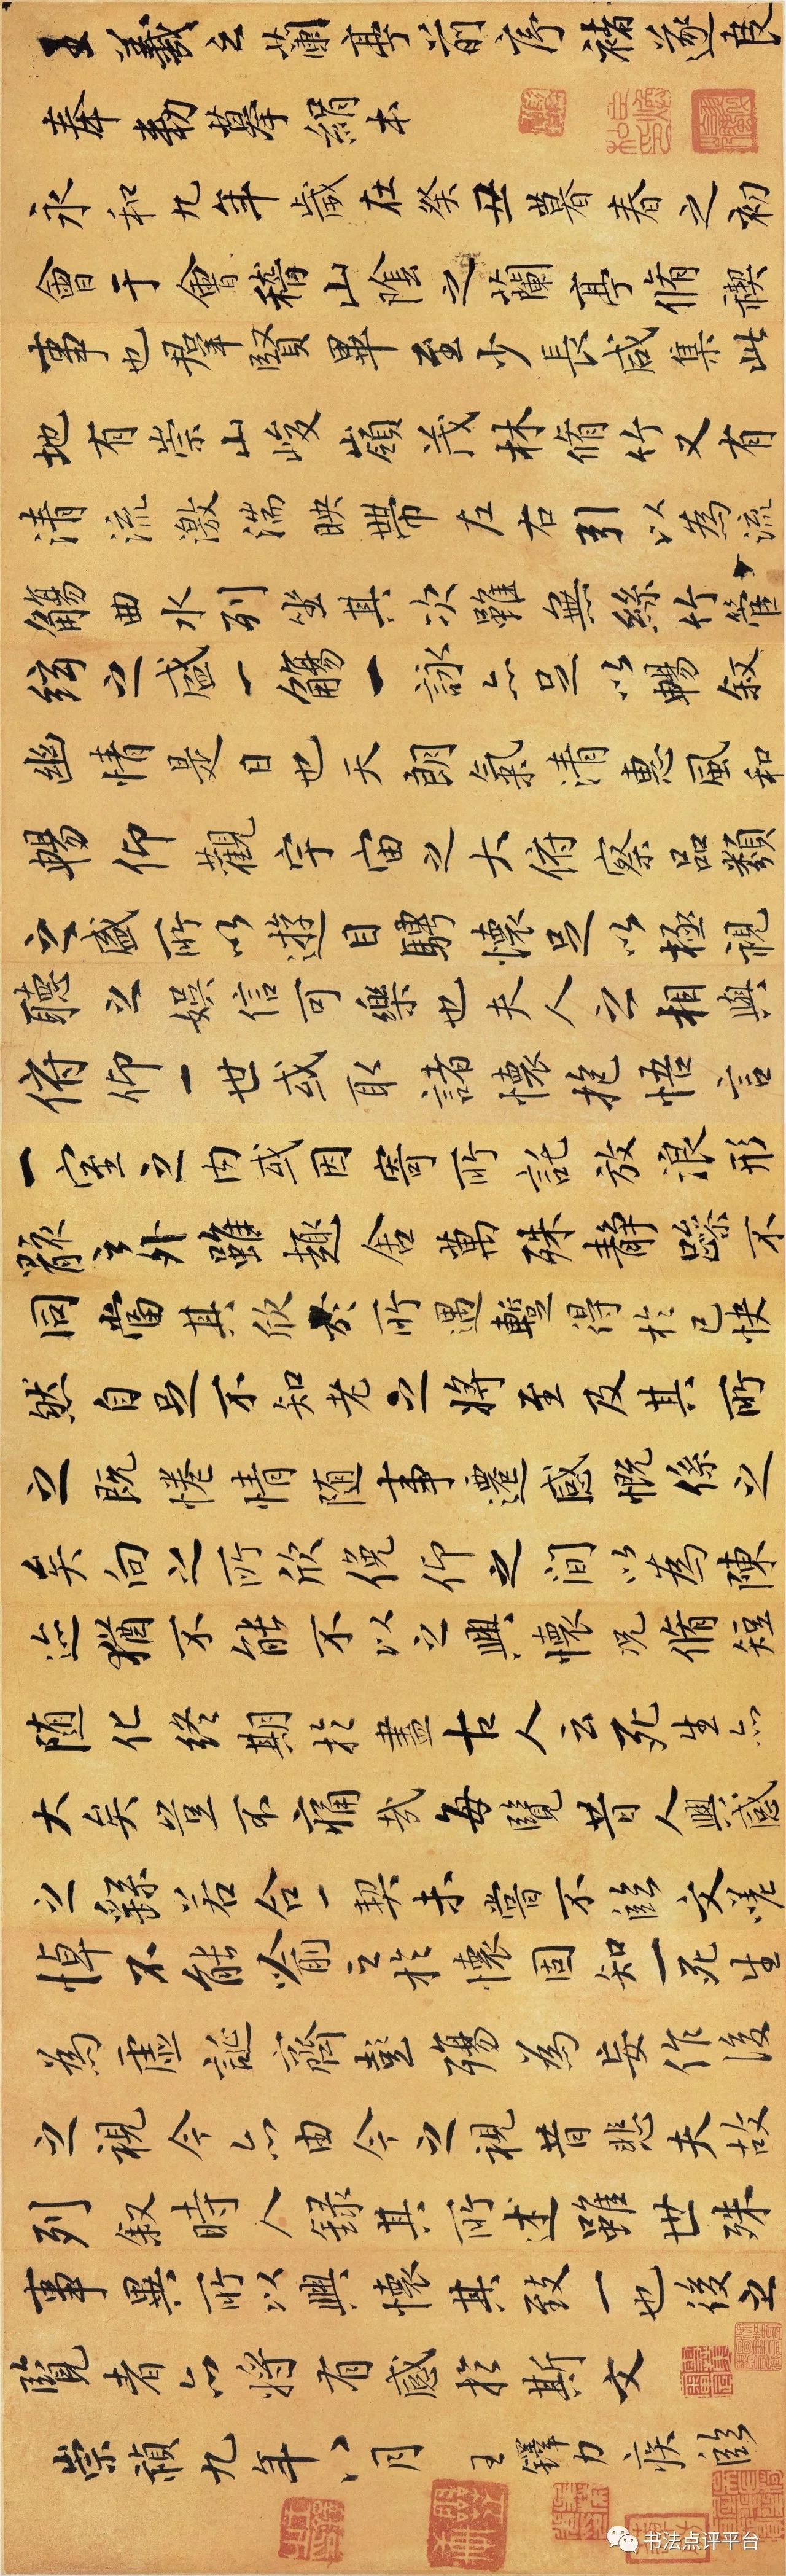 王羲之蘭亭前序褚遂良
奉勅摹絹本
永和九年歲在癸丑暮春之初
會于會稽山陰之蘭亭脩禊
事也群賢畢至少長咸集此
地有崇山峻嶺茂林脩竹又有
清流激湍映帶左右引以為流
觴曲水列坐其次雖無絲竹管
絃之盛一觴一詠亦足以暢叙
幽情是日也天朗氣清惠風和
暢仰觀宇宙之大俯察品類
之盛所以遊目騁懷足以極視
聽之娛信可樂也夫人之相與
俯仰一世或取諸懷抱悟言
一室之内或因寄所託放浪形
骸之外雖趣舍萬殊静躁不
同當其欣於所遇暫得於己快
然自足不知老之將至及其所
之既惓情随事遷感慨係之
矣向之所欣俛仰之間以為陳
迹猶不能不以之興懷況脩短
随化終期於盡古人云死生亦
大矣豈不痛哉每覽昔人興感
之繇若合一契未嘗不臨文嗟
悼不能喻之於懷固知一死生
為虛誕齊彭殤為妄作後
之視今亦由今之視昔悲夫故
列叙時人錄其所述雖世殊
事異所以興懷其致一也後之
覽者亦將有感於斯文
崇禎九年八月 王鐸力疾臨
书法点评平台